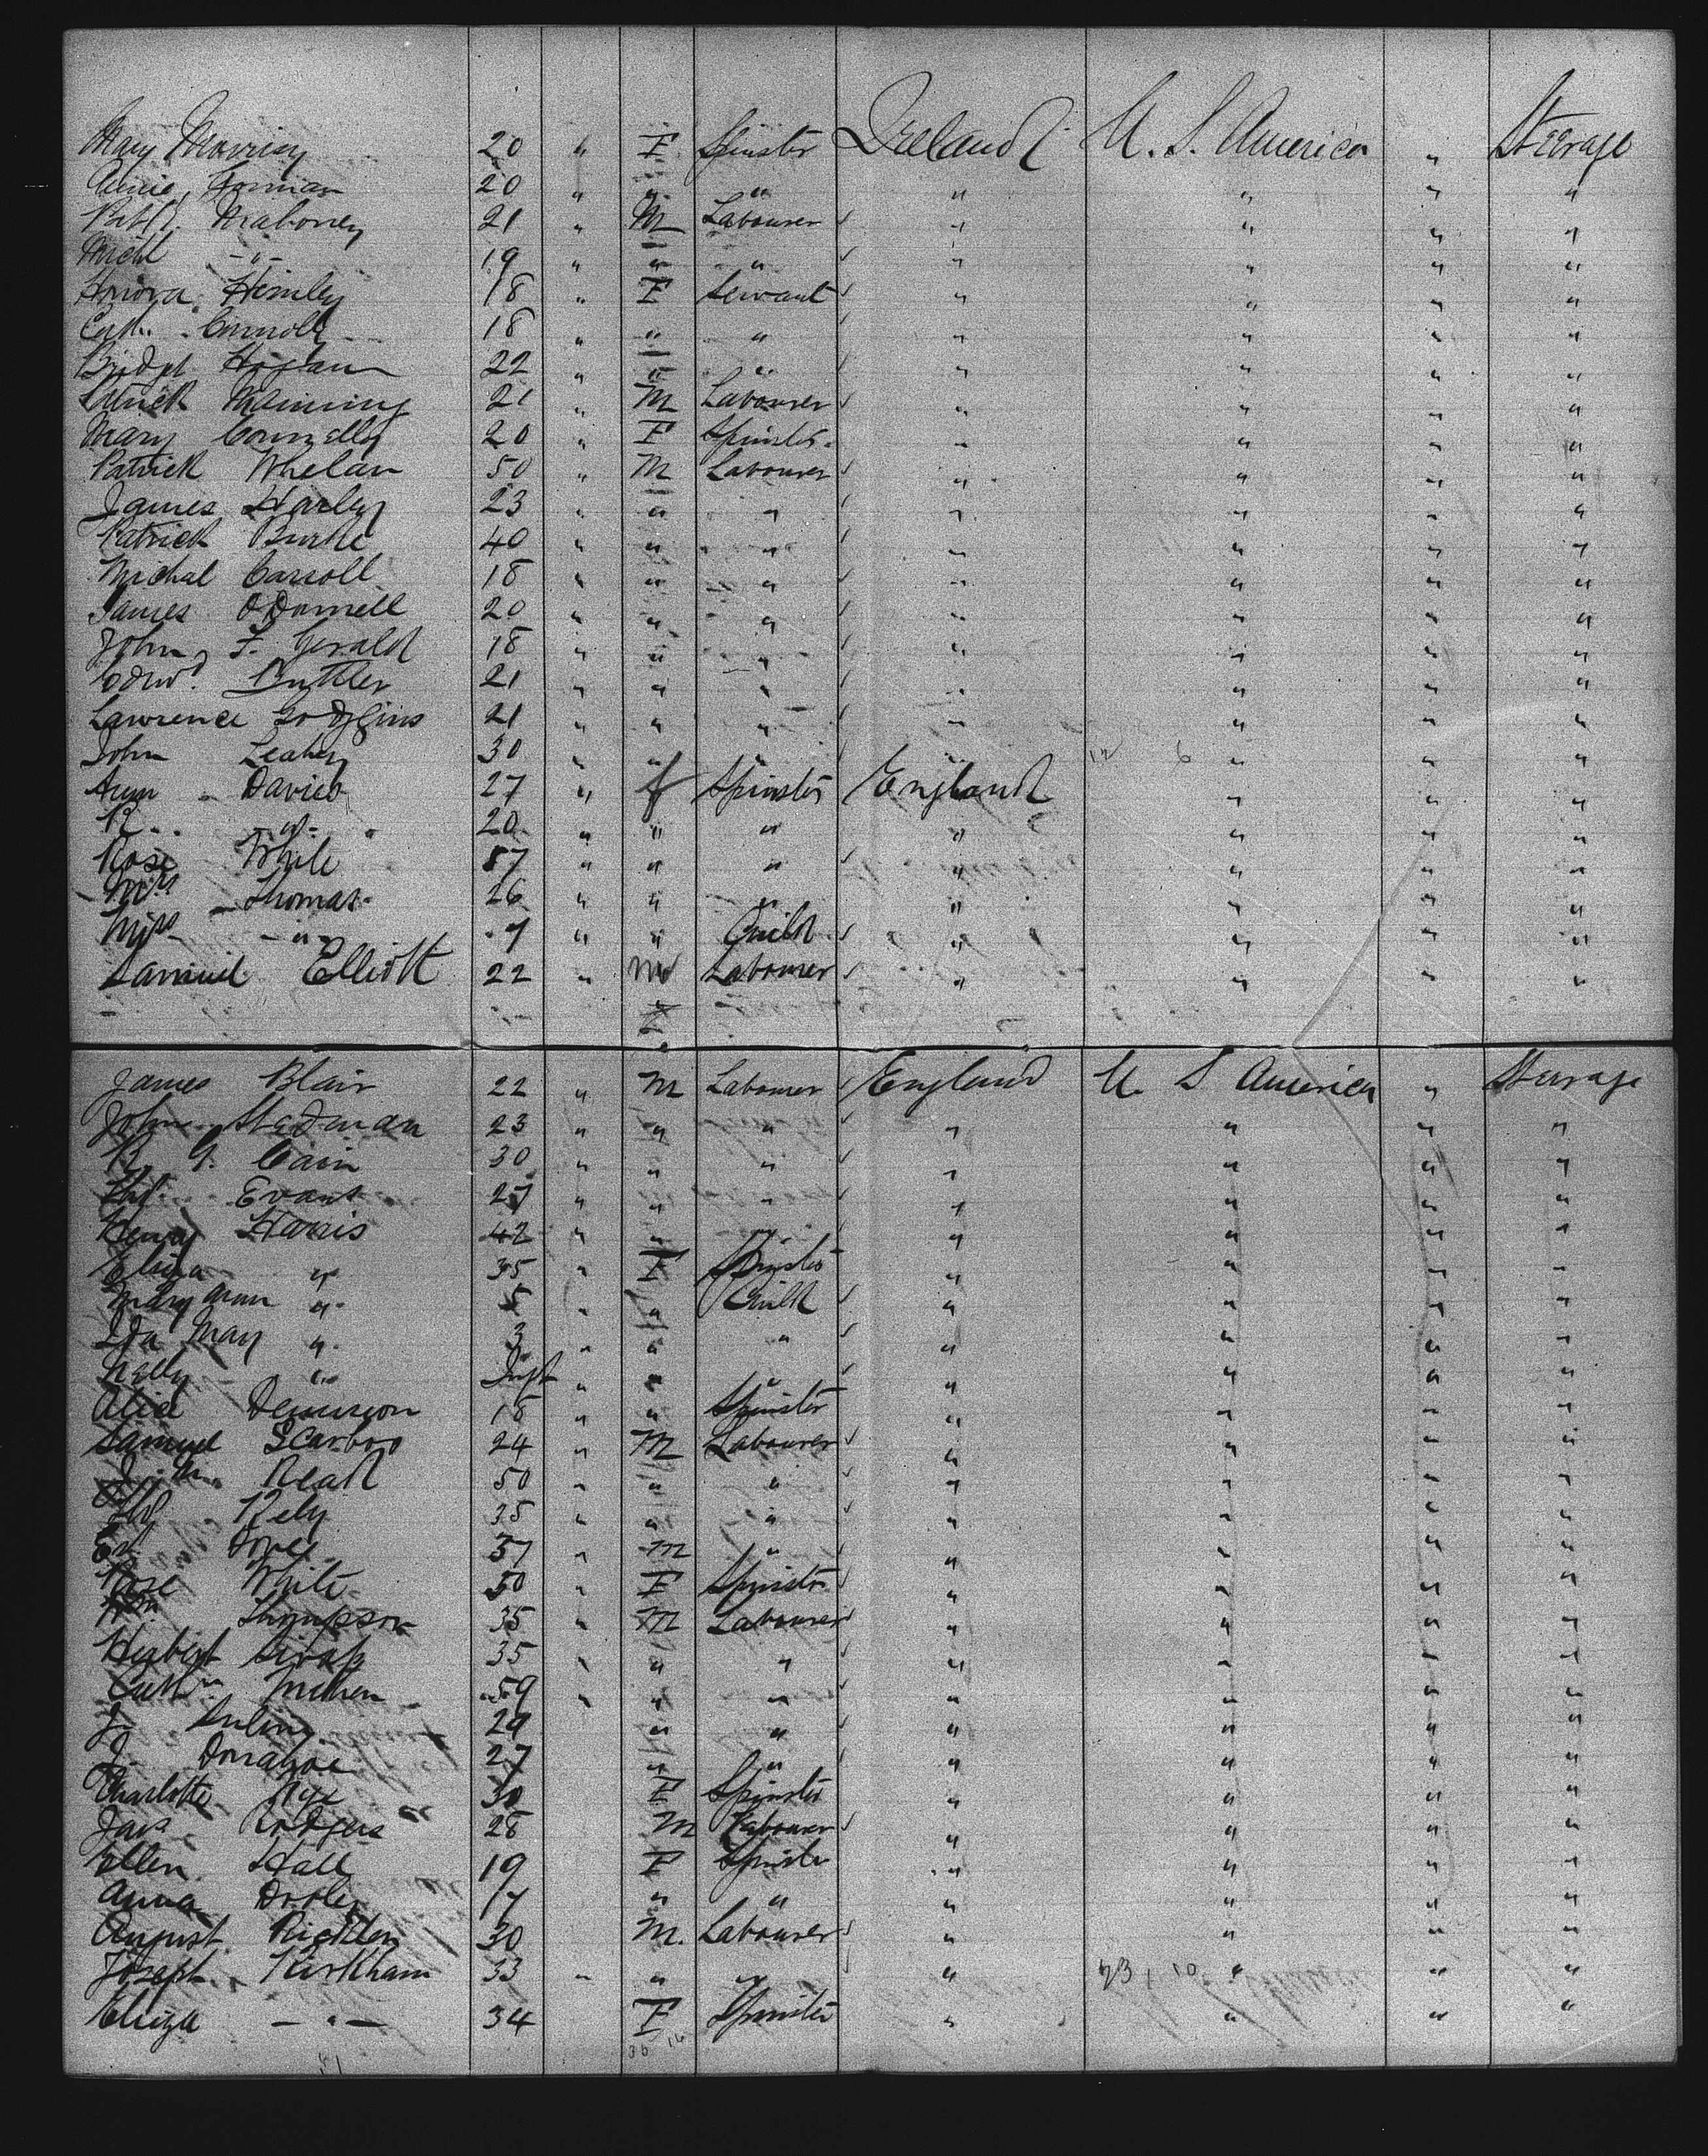 Mary Morrisy 20 " F Spinster Ireland U. S. America " Steerage
Annie Gorman 20 " " " " " " "
Patk. Mahoney 21 " M Labourer " " " "
Michl -"- 19 " " " " " " "
Honora Henley 18 " F Servant " " " "
Cath. Connolly 18 " " " " " " "
Bridget Hogan 22 " " " " " " "
Patrick Manning 21 " M Labourer " " " "
Mary Connelly 20 " F Spinster " " " "
Patrick Whelan 50 " M Labourer " " " "
James Harley 23 " " " " " " "
Patrick Burke 40 " " " " " " "
Michal Carroll 18 " " " " " " "
James O'Donnell 20 " " " " " " "
John F. Gerald 18 " " " " " " "
Edwd. Buttler 21 " " " " " " "
Lawrence Hodgins 21 " " " " " " "
John Leahey 30 " " " " " " "
Ann Davies 27 " f Spinster England " " "
R. -"- 20 " " " " " " "
Rose White 57 " " " " " " "
Mrs Thomas 26 " " " " " " "
Miss -"- 7 " " Child " " " "
Samuel Elliott 22 " M Labourer " " " "
James Blair 22 " M Labourer England U. S America " Steerage
John Stedman 23 " " " " " " "
R. G. Cain 30 " " " " " " "
Evans 27 " " " " " " "
Henry Harris 42 " " " " " " "
Eliza " 35 " F Spinster " " " "
Mary Ann " 5 " " Child " " " "
Ida May " 3 " " " " " " "
Nelly " Inft " " " " " " "
Alice Dennison 18 " " Spinster " " " "
Samuel Scarboro 24 " M Labourer " " " "
J. M. Read 50 " " " " " " "
Kely 35 " " " " " " "
Ed. Jones 37 " M " " " " "
Rose White 50 " F Spinster " " " "
Wm Thompson 35 " M Labourer " " " "
Herbert 35 " " " " " " "
59 " " " " " " "
J. 29 " " " " " "
J. Donahoe 27 " " " " " "
Charlotte Nye 30 F Spinster " " " "
Jas Rodgers 28 M Labourer " " " "
Ellen Hall 19 F Spinster " " " "
Anna Dooley 17 " " " " " "
August Richter 30 M. Labourer " " " "
Joseph Kirkham 33 " " " " " " "
Eliza -"- 34 F Spinster " " " "